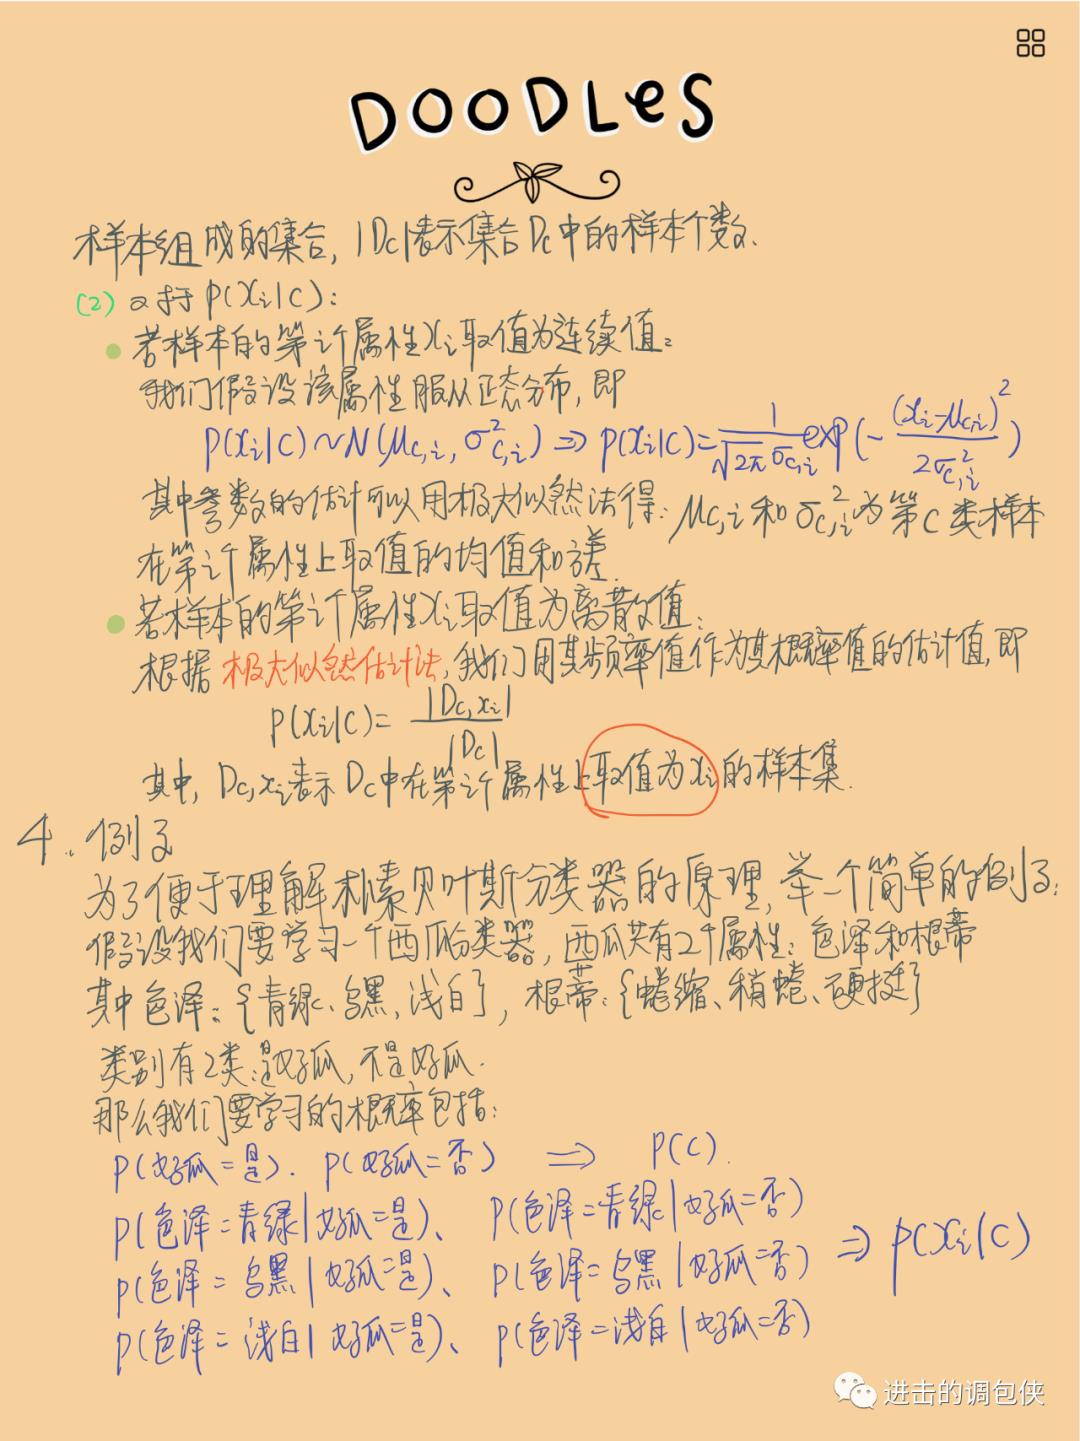 DOODLES
样本组成的集合, |Dc|表示集合Dc中的样本个数.
(2) 对于 P(xi|c):
若样本的第i个属性xi取值为连续值:
我们假设该属性服从正态分布, 即
P(xi|c)~N(μc,i, σ²c,i) ⇒ P(xi|c)= 1/(√2π σc,i) exp(-(xi-μc,i)²/2σ²c,i)
其中参数的估计可以用极大似然法得: μc,i和σ²c,i为第c类样本
在第i个属性上取值的均值和方差.
若样本的第i个属性xi取值为离散值:
根据极大似然估计法, 我们用其频率值作为其概率值的估计值, 即
P(xi|c)= |Dc,xi| / |Dc|
其中, Dc,xi表示Dc中在第i个属性上取值为xi的样本集.
4. 例子
为了便于理解朴素贝叶斯分类器的原理, 举一个简单的例子:
假设我们要学习一个西瓜分类器, 西瓜共有2个属性: 色泽和根蒂
其中色泽: {青绿、乌黑、浅白}, 根蒂: {蜷缩、稍蜷、硬挺}
类别有2类: 是好瓜, 不是好瓜.
那么我们要学习的概率包括:
P(好瓜=是). P(好瓜=否) ⇒ P(c).
P(色泽=青绿|好瓜=是)、 P(色泽=青绿|好瓜=否)
P(色泽=乌黑|好瓜=是)、 P(色泽=乌黑|好瓜=否) ⇒ P(xi|c)
P(色泽=浅白|好瓜=是)、 P(色泽=浅白|好瓜=否)
进击的调包侠